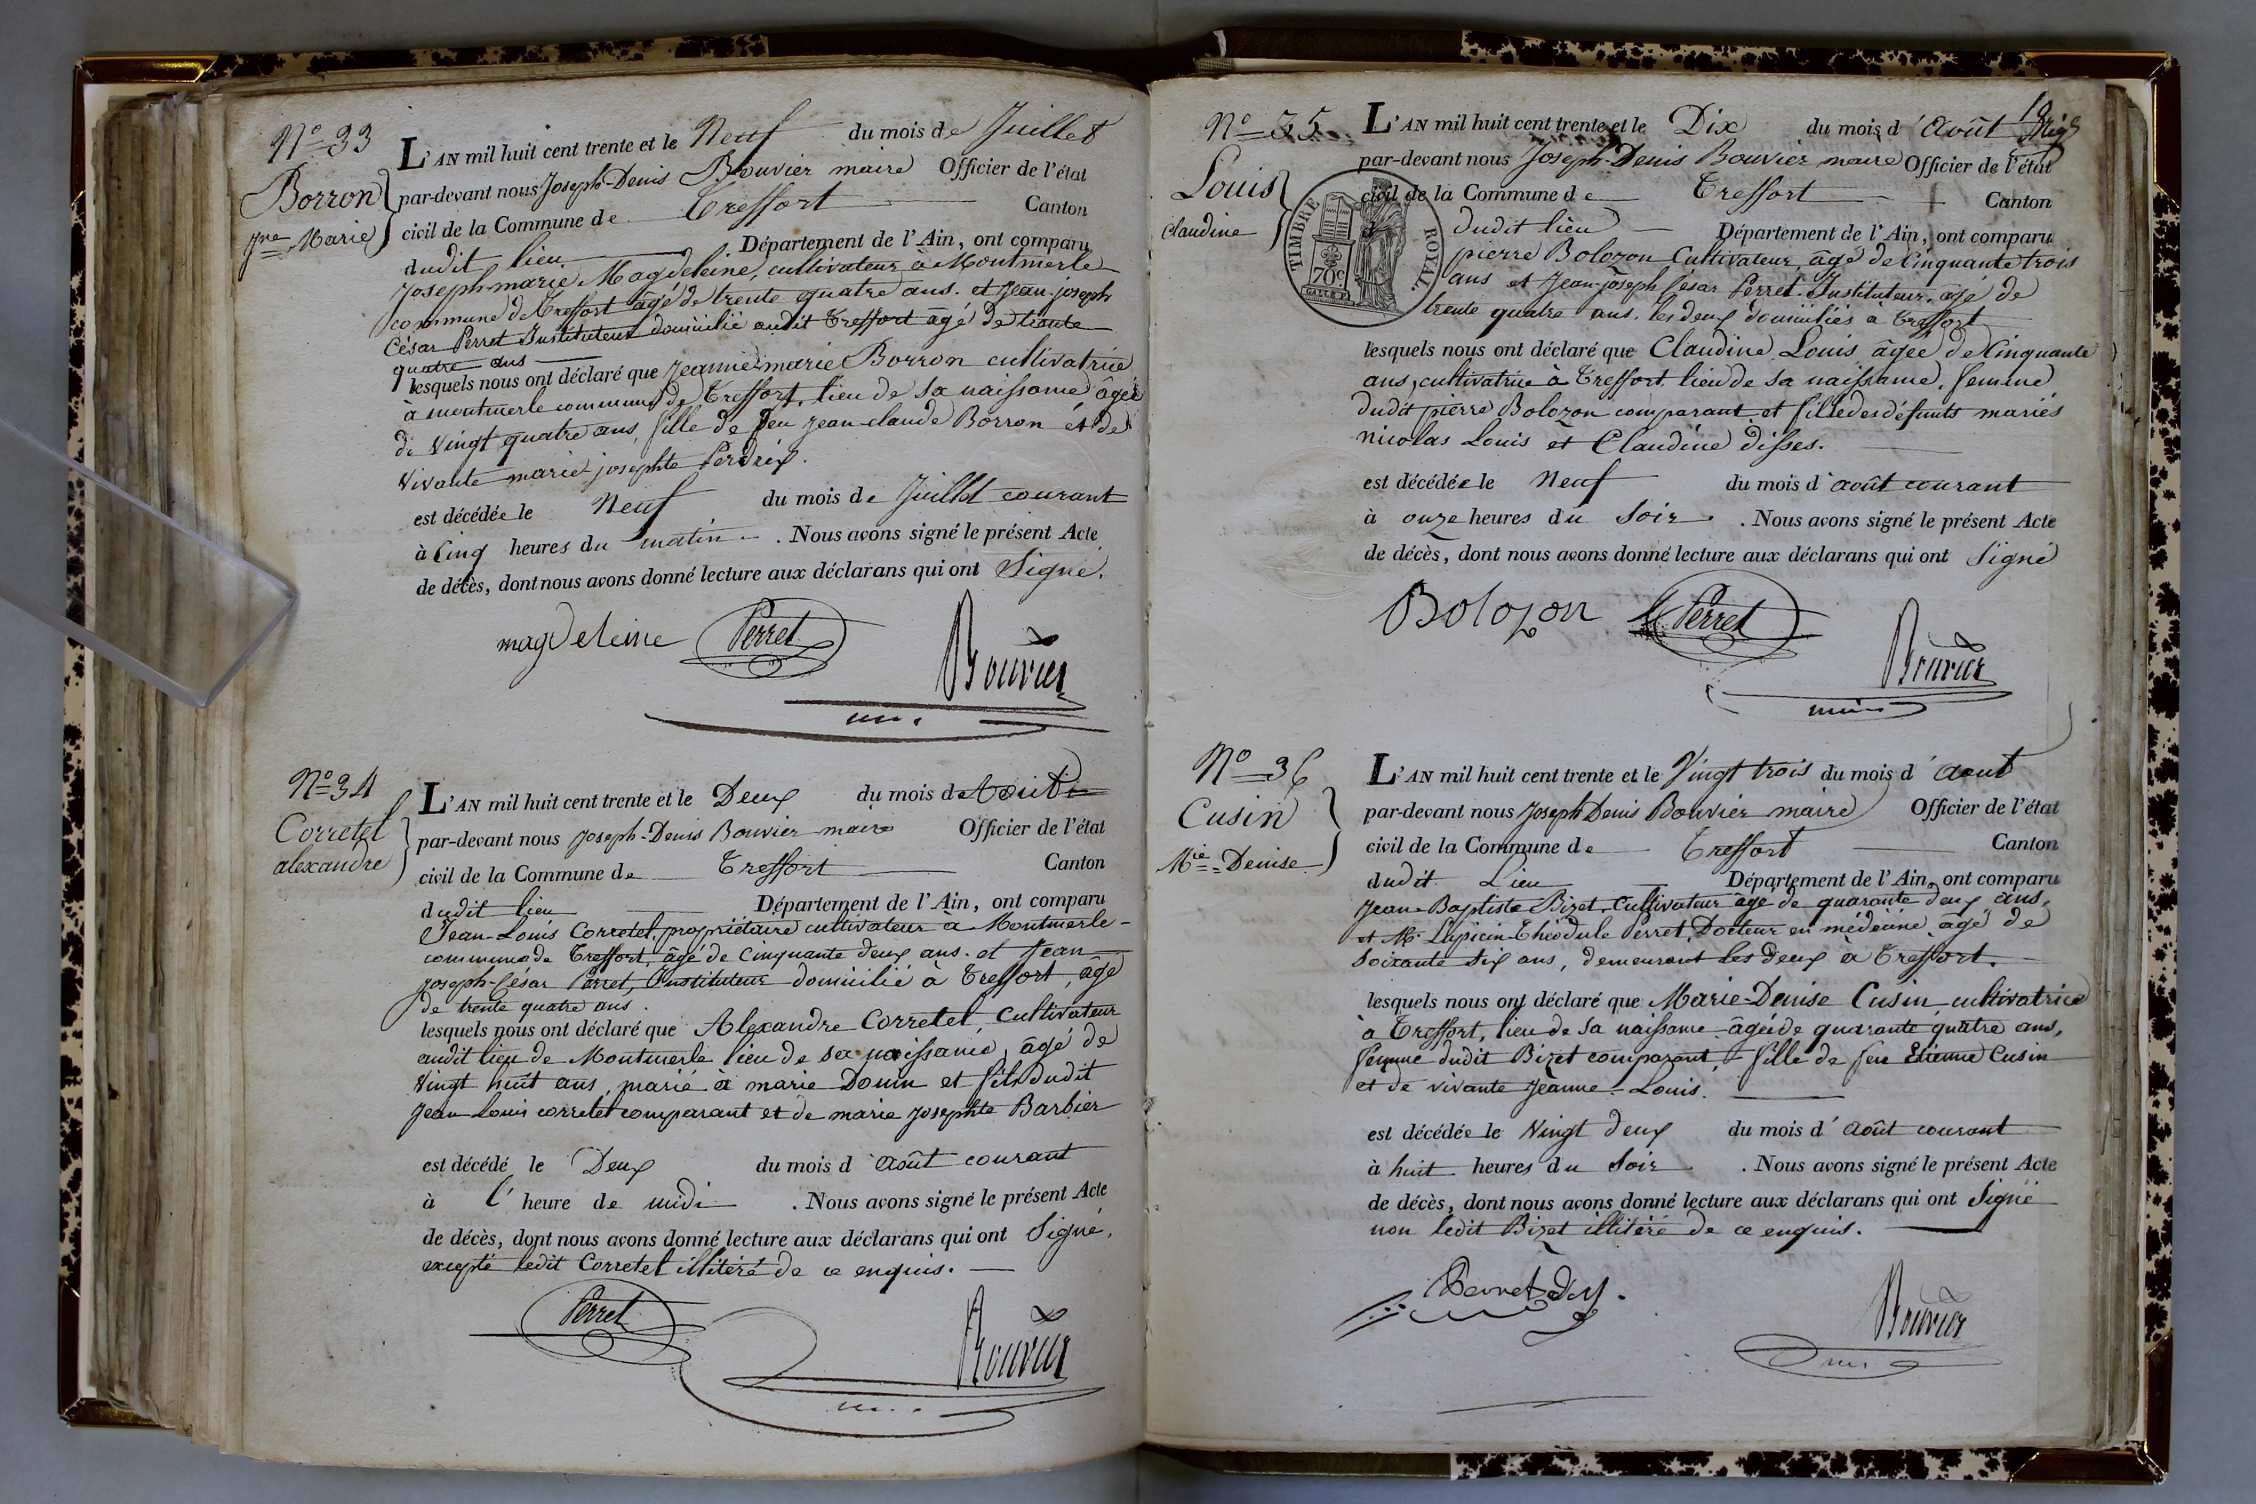 Nº 33
Borron
Jne Marie
L'AN mil huit cent trente et le Neuf du mois de Juillet
par-devant nous Joseph-Denis Bouvier maire Officier de l'état
civil de la Commune de Treffort Canton
dudit lieu Département de l'Ain, ont comparu
Joseph-marie Magdeleine, cultivateur à Montmerle
commune de Treffort âgé de trente quatre ans. et Jean-joseph
César Perret Instituteur domicilié audit Treffort âgé de trente
quatre ans
lesquels nous ont déclaré que Jeanne-marie Borron cultivatrice
à montmerle commune de Treffort, lieu de sa naissance âgée
de vingt quatre ans, fille de feu Jean-claude Borron et de
vivante marie josephte Perdrix.
est décédée le Neuf du mois de Juillet courant
à Cinq heures du matin. Nous avons signé le présent Acte
de décès, dont nous avons donné lecture aux déclarans qui ont Signé.
magdeleine Perret Bouvier
Nº 34
Corretel
alexandre
L'AN mil huit cent trente et le Deux du mois d Août
par-devant nous Joseph-Denis Bouvier maire Officier de l'état
civil de la Commune de Treffort Canton
dudit lieu Département de l'Ain, ont comparu
Jean-Louis Corretel, propriétaire cultivateur à Montmerle
commune de Treffort, âgé de cinquante deux ans. et Jean
Joseph-César Perret, Instituteur domicilié à Treffort, âgé
de trente quatre ans.
lesquels nous ont déclaré que Alexandre Corretel, Cultivateur
audit lieu de Montmerle lieu de sa naissance, âgé de
vingt huit ans, marié à marie Douin et fils dudit
Jean Louis corretel comparant et de marie josephte Barbier
est décédé le Deux du mois d'août courant
à l'heure de midi. Nous avons signé le présent Acte
de décès, dont nous avons donné lecture aux déclarans qui ont Signé,
excepté ledit Corretel illitéré de ce enquis.
Perret Bouvier
Nº 35
Louis
Claudine
TIMBRE ROYAL
70 c.
L'AN mil huit cent trente et le Dix du mois d'Août
par-devant nous Joseph-Denis Bouvier maire Officier de l'état
civil de la Commune de Treffort Canton
dudit lieu Département de l'Ain, ont comparu
pierre Bolozon Cultivateur, âgé de Cinquante trois
ans et Jean-joseph César Perret Instituteur, âgé de
trente quatre ans. les deux domiciliés à Treffort
lesquels nous ont déclaré que Claudine Louis âgée de Cinquante
ans, cultivatrice à Treffort, lieu de sa naissance, femme
dudit pierre Bolozon comparant et fille des défunts mariés
nicolas Louis et Claudine disses.
est décédée le Neuf du mois d'août courant
à onze heures du Soir. Nous avons signé le présent Acte
de décès, dont nous avons donné lecture aux déclarans qui ont Signé
Bolozon Perret Bouvier
maire
Nº 36
Cusin
Mie Denise
L'AN mil huit cent trente et le Vingt trois du mois d'Aout
par-devant nous Joseph Denis Bouvier maire Officier de l'état
civil de la Commune de Treffort Canton
dudit Lieu Département de l'Ain, ont comparu
Jean-Baptiste Bizet, Cultivateur âgé de quarante deux ans,
et Mr. Lupicin-Théodule Perret, Docteur en médecine âgé de
Soixante six ans, demeurant les deux à Treffort.
lesquels nous ont déclaré que Marie-Denise Cusin, cultivatrice
à Treffort, lieu de sa naissance âgée de quarante quatre ans,
femme dudit Bizet comparant, fille de feu Etienne Cusin
et de vivante Jeanne Louis.
est décédée le Vingt deux du mois d'août courant
à huit heures du Soir. Nous avons signé le présent Acte
de décès, dont nous avons donné lecture aux déclarans qui ont Signé
non ledit Bizet illitéré de ce enquis.
Perret d.m. Bouvier